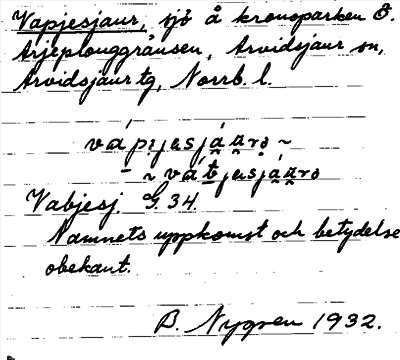 Vapjesjaur, sjö å kronoparken Ö.
Arjeplouggränsen, Arvidsjaur sn,
Arvidsjaur tg, Norrb. l.
vápi̯esjáu̯rə ~
~ vát̲jesjáu̯rə
Vabjesj. G 34.
Namnets uppkomst och betydelse
obekant.
B. Nygren 1932.